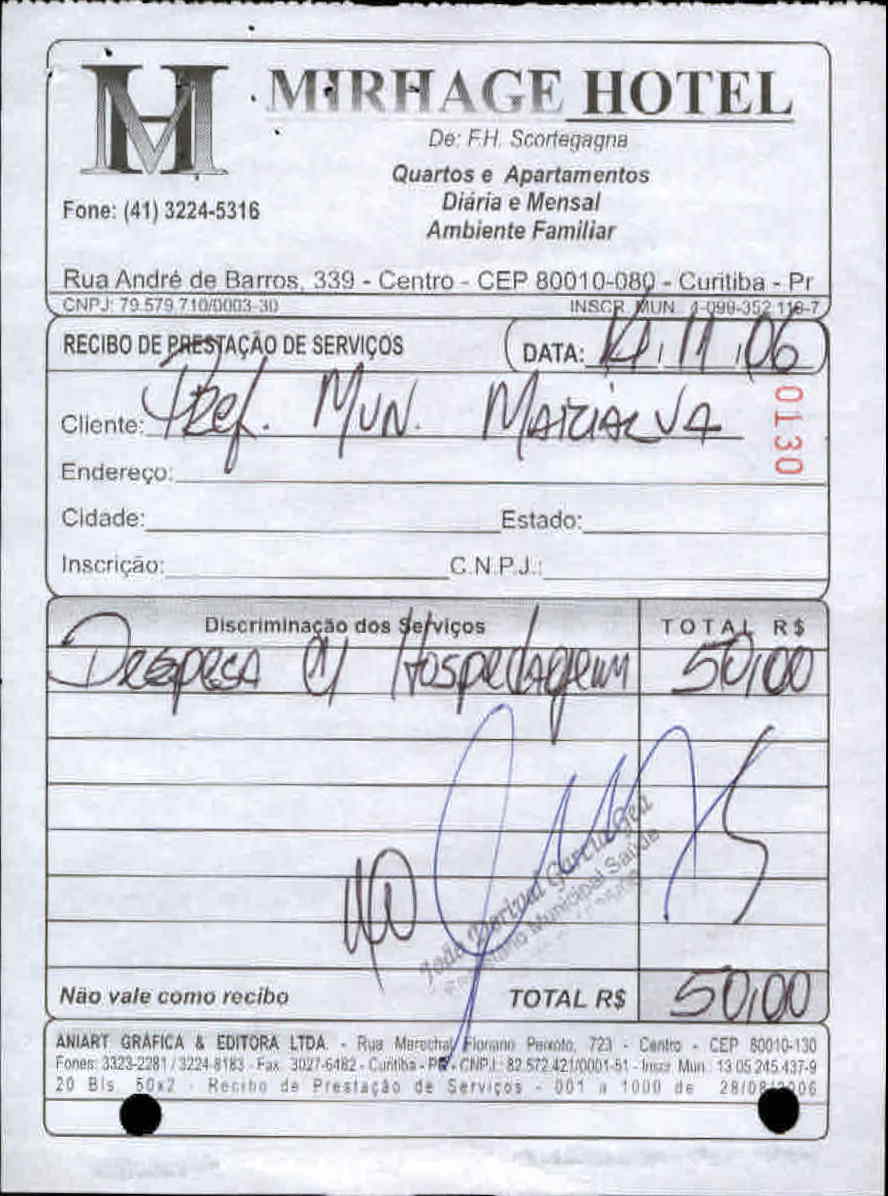 MIRHAGE HOTEL
De: F.H. Scortegagna
Quartos e Apartamentos
Diária e Mensal
Ambiente Familiar
Fone: (41) 3224-5316
Rua André de Barros, 339 - Centro - CEP 80010-080 - Curitiba - Pr
CNPJ: 79.579.710/0003-30 INSCR. MUN. 4-099-352.118-7
RECIBO DE PRESTAÇÃO DE SERVIÇOS DATA: 14, 11, 06
Cliente: Pref. MUN. MARIALVA
0130
Endereço:
Cidade: Estado:
Inscrição: C.N.P.J.:
Discriminação dos Serviços TOTAL R$
Despesa c/ Hospedagem 50,00
Garcia
Municipal Saúde
Não vale como recibo TOTAL R$ 50,00
ANIART GRÁFICA & EDITORA LTDA. - Rua Marechal Floriano Peixoto, 723 - Centro - CEP 80010-130
Fones: 3323-2281 / 3224-8183 - Fax: 3027-6482 - Curitiba - PR - CNPJ: 82.572.421/0001-51 - Inscr. Mun.: 13.05.245.437-9
20 Bls. 50x2 - Recibo de Prestação de Serviços - 001 a 1000 de 28/08/2006